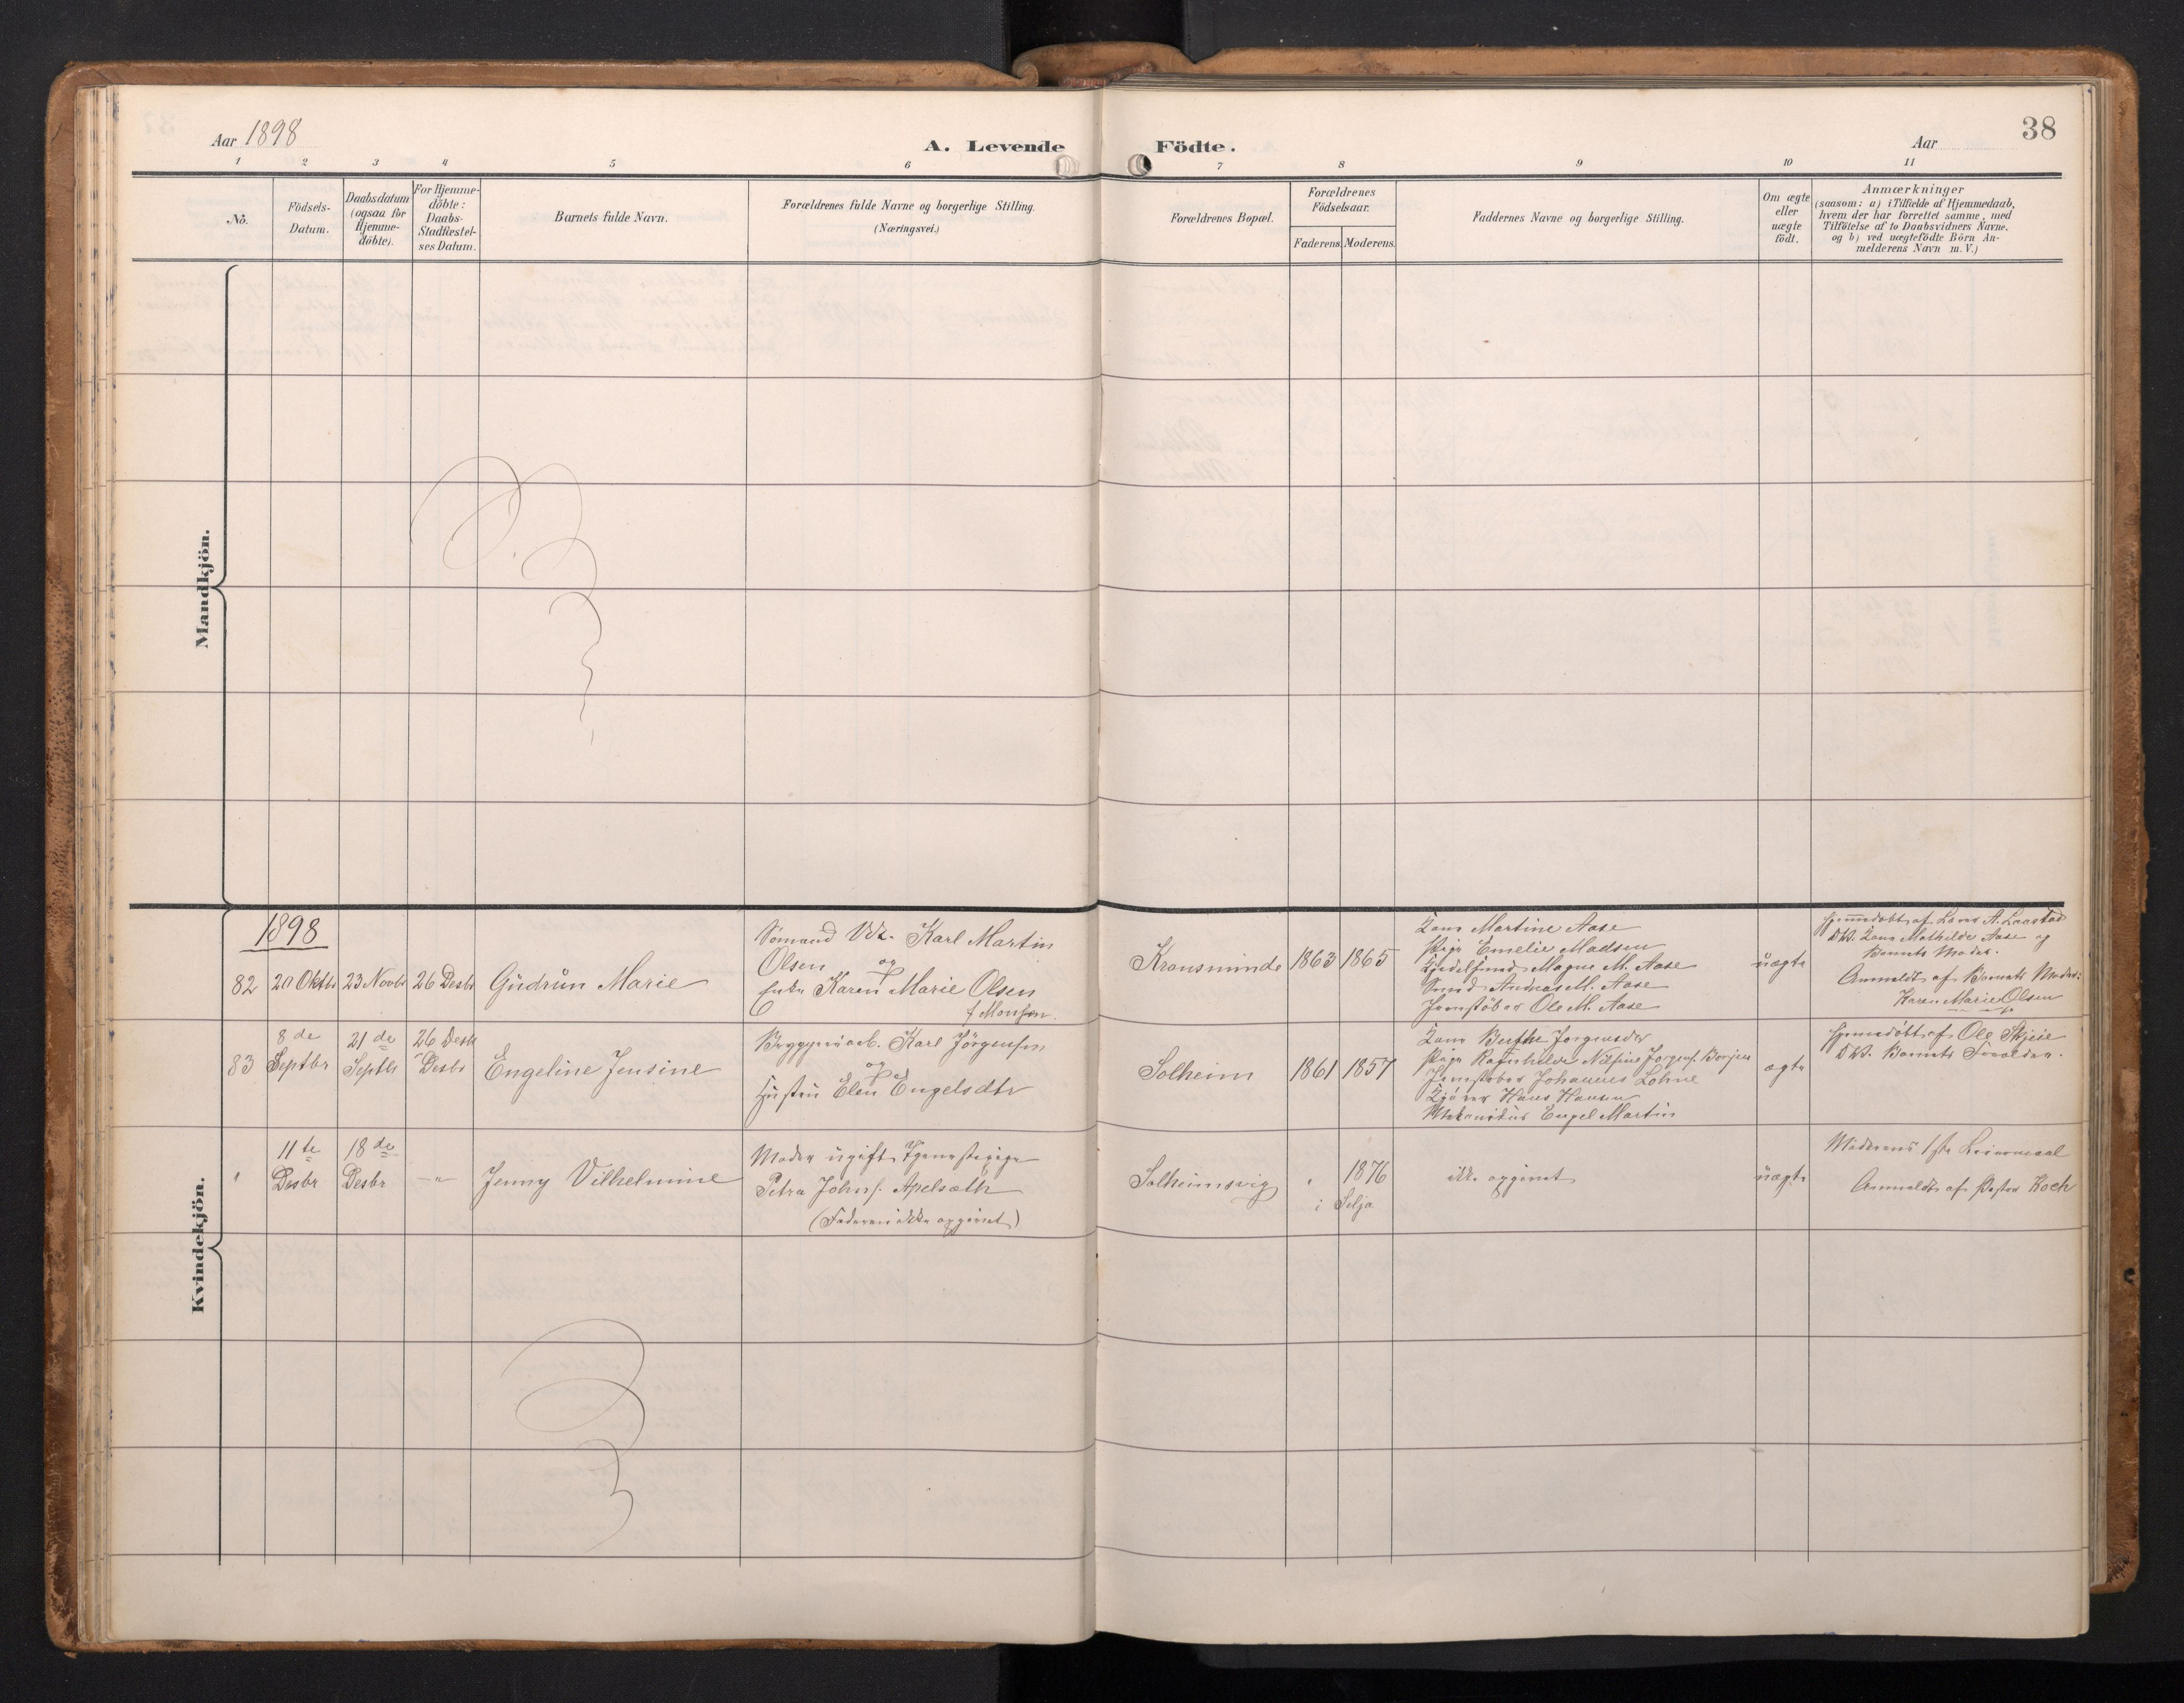 Aar 1898
A. Levende
Födte.
Aar
38
1 2 3 4 5 6 7 8 9 10 11
No.
Födsels-
Datum.
Daabsdatum
(ogsaa for
Hjemme-
döbte).
For Hjemme-
döbte:
Daabs-
Stadfæstel-
ses Datum.
Barnets fulde Navn.
Forældrenes fulde Navne og borgerlige Stilling.
(Næringsvei.)
Forældrenes Bopæl.
Forældrenes
Födselsaar.
Faderens. Moderens.
Faddernes Navne og borgerlige Stilling.
Om ægte
eller
uægte
födt.
Anmærkninger
(saasom: a) i Tilfælde af Hjemmedaab,
hvem der har forrettet samme, med
Tilföielse af to Daabsvidners Navne.
og b) ved uægtefödte Börn An-
melderens Navn m.V.)
Mandkjön.
Kvindekjön.
1898
82
20 Oktbr
23 Novbr
26 Desbr
Gudrun Marie
Sömand Karl Martin
Olsen og
Enke Karen Marie Olsen
f. Monsen.
Kronsminde
1863
1865
Kone Martine Aase
Pige Emelie Madsen
Magne M. Aase
Smed Andreas M. Aase
Jernstöber Ole M. Aase
uægte
Hjemmedöbt af Lars A. Laastad
D.V. Kone Mathilde Aase og
Barnets Moder.
Anmeldt af Barnets Moder:
Karen Marie Olsen
83
8 de
Septbr
21 de
Septbr
26 Desbr
Desbr
Engeline Jensine
Bryggeriarb. Karl Jörgensen
og
Hustru Elen Engelsdtr
Solheim
1861
1857
Kone Berthe Jorgensdtr
Pige Ragnhilda Nilsine Jorgens. Borjen
Jernstöber Johannes Lohne
Hans Hansen
Mekanikus Engel Martin
ægte
Hjemmedöbt af Ole Skjeie
D.V. Barnets Forældre.
"
11 te
Desbr
18 de
Desbr
- "
Jenny Vilhelmine
Moder ugift Tjenestepige
Petra Johns. Apelsæth
(Faderen ikke opgivet)
Solheimsvig
"
1876
i Selja
ikke opgivet
uægte
Moderens 1ste Leiermaal
Anmeldt af Pastor Koch